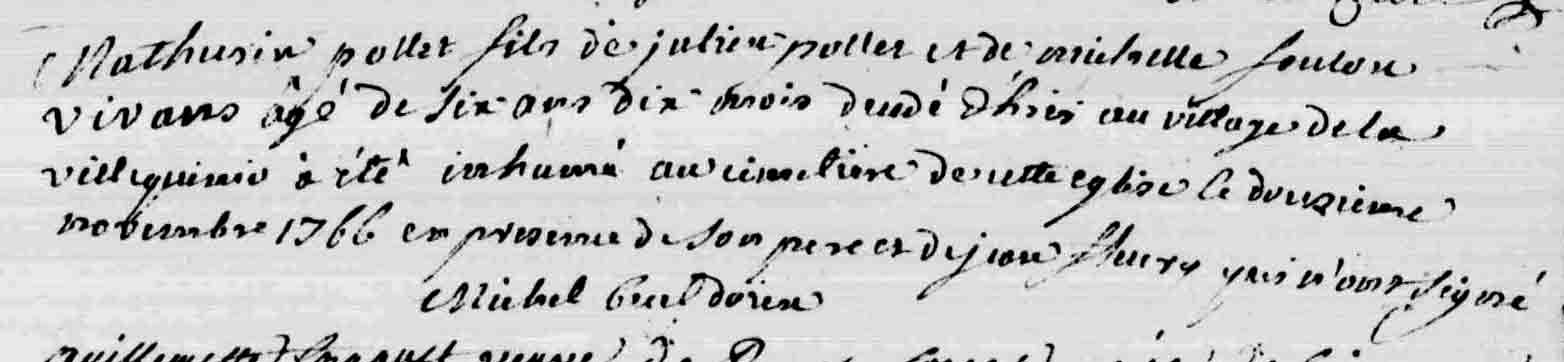 Mathurin pollet fils de julien pollet et de michelle foulon
vivans âgé de six ans dix mois decedé d'hier au village de la
villequinio à été inhumé au cimetiere de cette eglise le douzieme
novembre 1766 en presence de son pere et de jean fleury qui n'ont signé
Michel
Guillemette veuve de